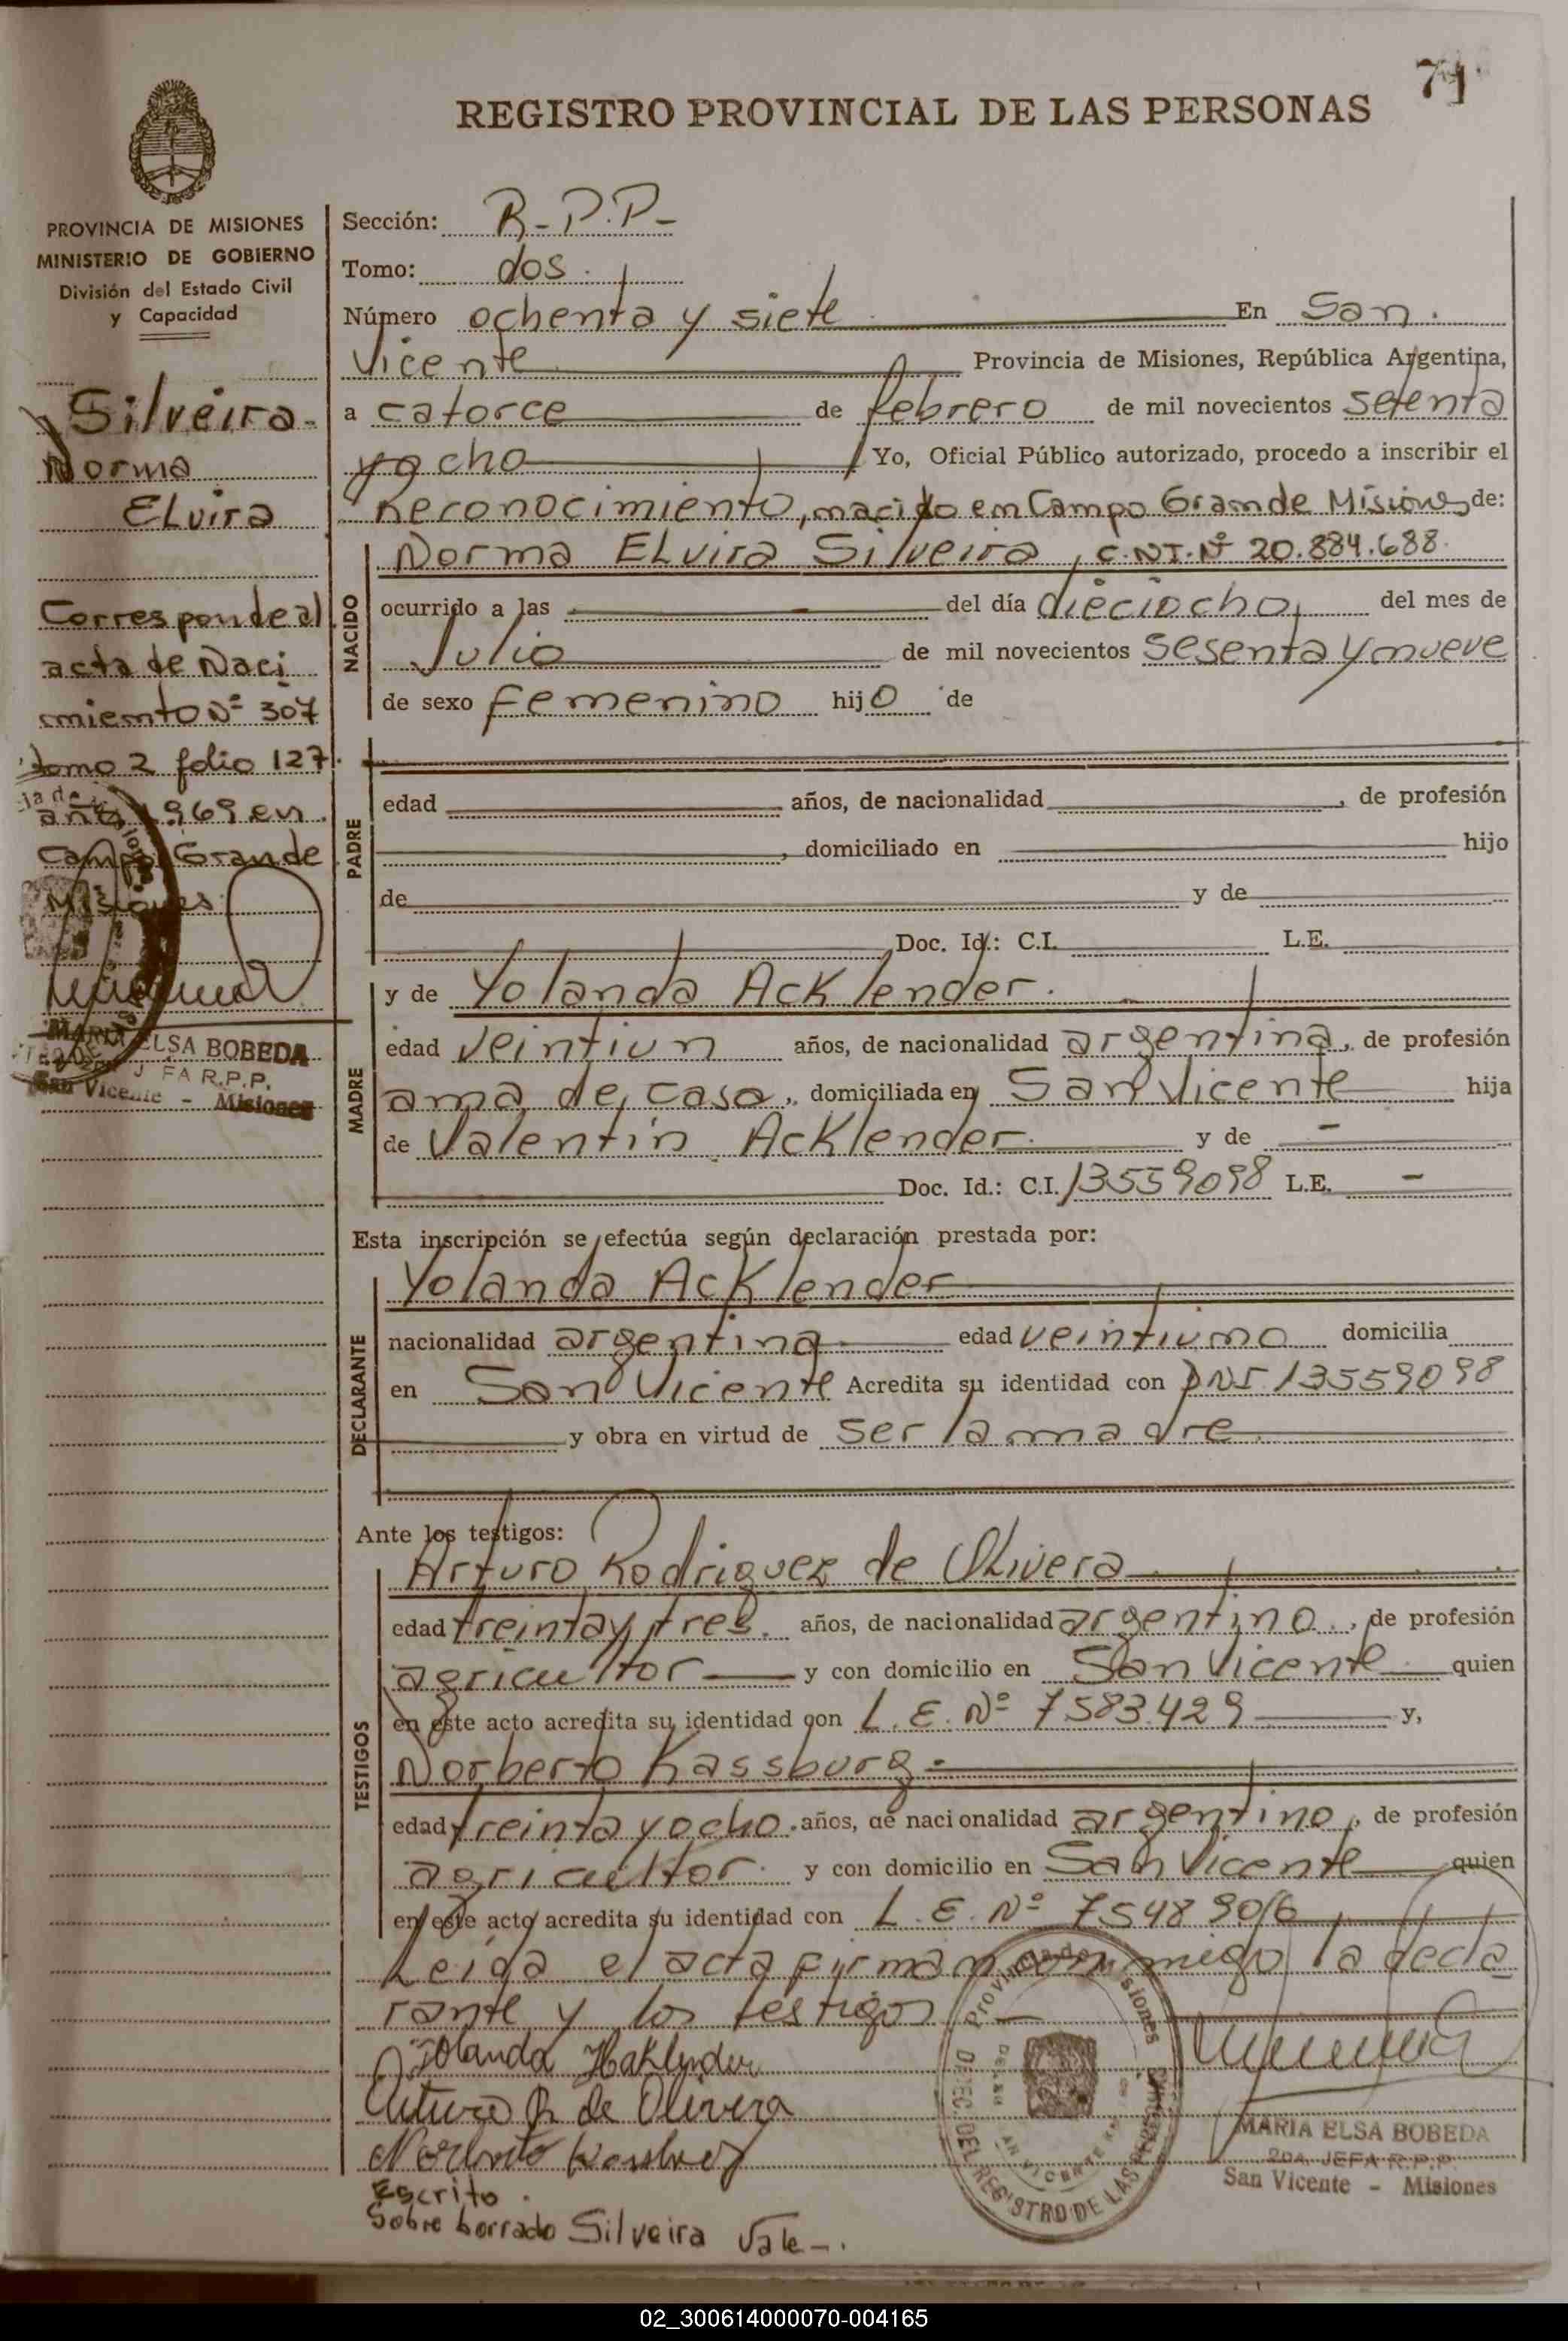 71
REGISTRO PROVINCIAL DE LAS PERSONAS
PROVINCIA DE MISIONES
MINISTERIO DE GOBIERNO
División del Estado Civil
y Capacidad
Silveira-
Norma
Elvira
Corresponde al
acta de Naci
miento Nº 307
tomo 2 folio 127
año 1969 en
Campo Grande
Misiones
MARIA ELSA BOBEDA
JEFA R.P.P.
San Vicente - Misiones
Sección: R-P.P-
Tomo: dos.
Número ochenta y siete En San
Vicente Provincia de Misiones, República Argentina,
a catorce de febrero de mil novecientos setenta
y ocho Yo, Oficial Público autorizado, procedo a inscribir el
Reconocimiento, nacido en Campo Grande Misiones de:
NACIDO
Norma Elvira Silveira, C.N.I. Nº 20.884.688
ocurrido a las del día dieciocho, del mes de
Julio de mil novecientos sesenta y nueve
de sexo femenino hijo de
PADRE
edad años, de nacionalidad , de profesión
, domiciliado en hijo
de y de
Doc. Id.: C.I. L.E.
MADRE
y de Yolanda Acklender.
edad veintiun años, de nacionalidad argentina, de profesión
ama de casa, domiciliada en San Vicente hija
de Valentín Acklender y de -
Doc. Id.: C.I. 13559098 L.E. -
Esta inscripción se efectúa según declaración prestada por:
DECLARANTE
Yolanda Acklender
nacionalidad argentina edad veintiuno domicilia
en San Vicente Acredita su identidad con DNI 13559098
y obra en virtud de ser la madre
Ante los testigos:
TESTIGOS
Arturo Rodriguez de Olivera
edad treinta y tres. años, de nacionalidad argentino, de profesión
agricultor y con domicilio en San Vicente quien
en este acto acredita su identidad con L.E. Nº 7583429 y,
Norberto Kassburg.
edad treinta y ocho. años, de nacionalidad argentino, de profesión
agricultor y con domicilio en San Vicente quien
en este acto acredita su identidad con L.E. Nº 7548906
Leída el acta firman conmigo la decla
rante y los testigos
Iolanda Haklender
Arturo R de Olivera
Norberto Kassburg
Provincia de Misiones
DIREC. DEL REGISTRO DE LAS PERSONAS
SAN VICENTE
MARIA ELSA BOBEDA
2DA. JEFA R.P.P.
San Vicente - Misiones
Escrito
Sobre borrado Silveira Vale-.
02_300614000070-004165